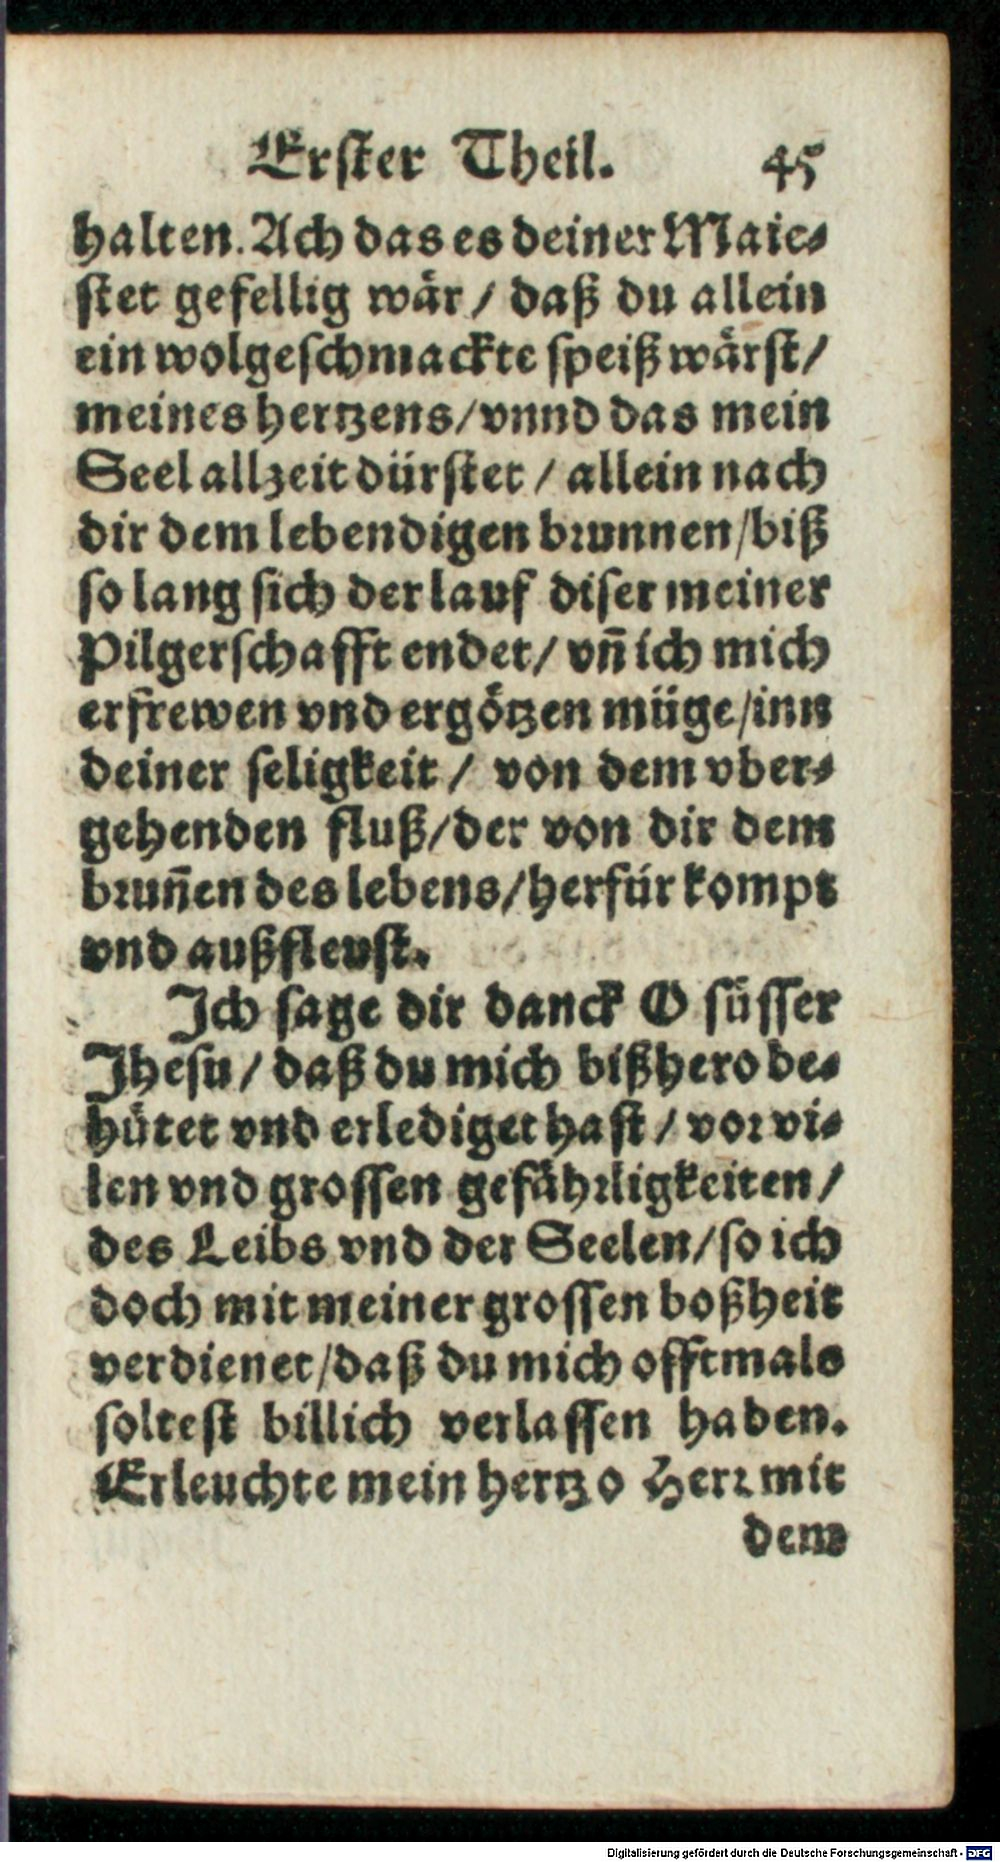 Erster Theil. 45
halten. Ach das es deiner Maie-
stet gefellig wär / daß du allein
ein wolgeschmackte speiß wärst /
meines hertzens / vnnd das mein
Seel allzeit dürstet / allein nach
dir dem lebendigen brunnen / biß
so lang sich der lauf diser meiner
Pilgerschafft endet / vn̄ ich mich
erfrewen vnd ergötzen müge / inn
deiner seligkeit / von dem vber-
gehenden fluß / der von dir dem
brun̄en des lebens / herfür kompt
vnd außfleust.
Ich sage dir danck O süsser
Jhesu / daß du mich bißhero be-
hütet vnd erlediget hast / vor vi-
len vnd grossen gefährligkeiten /
des Leibs vnd der Seelen / so ich
doch mit meiner grossen boßheit
verdienet / daß du mich offtmals
soltest billich verlassen haben.
Erleuchte mein hertz o Herr mit
dem
Digitalisierung gefördert durch die Deutsche Forschungsgemeinschaft - DFG